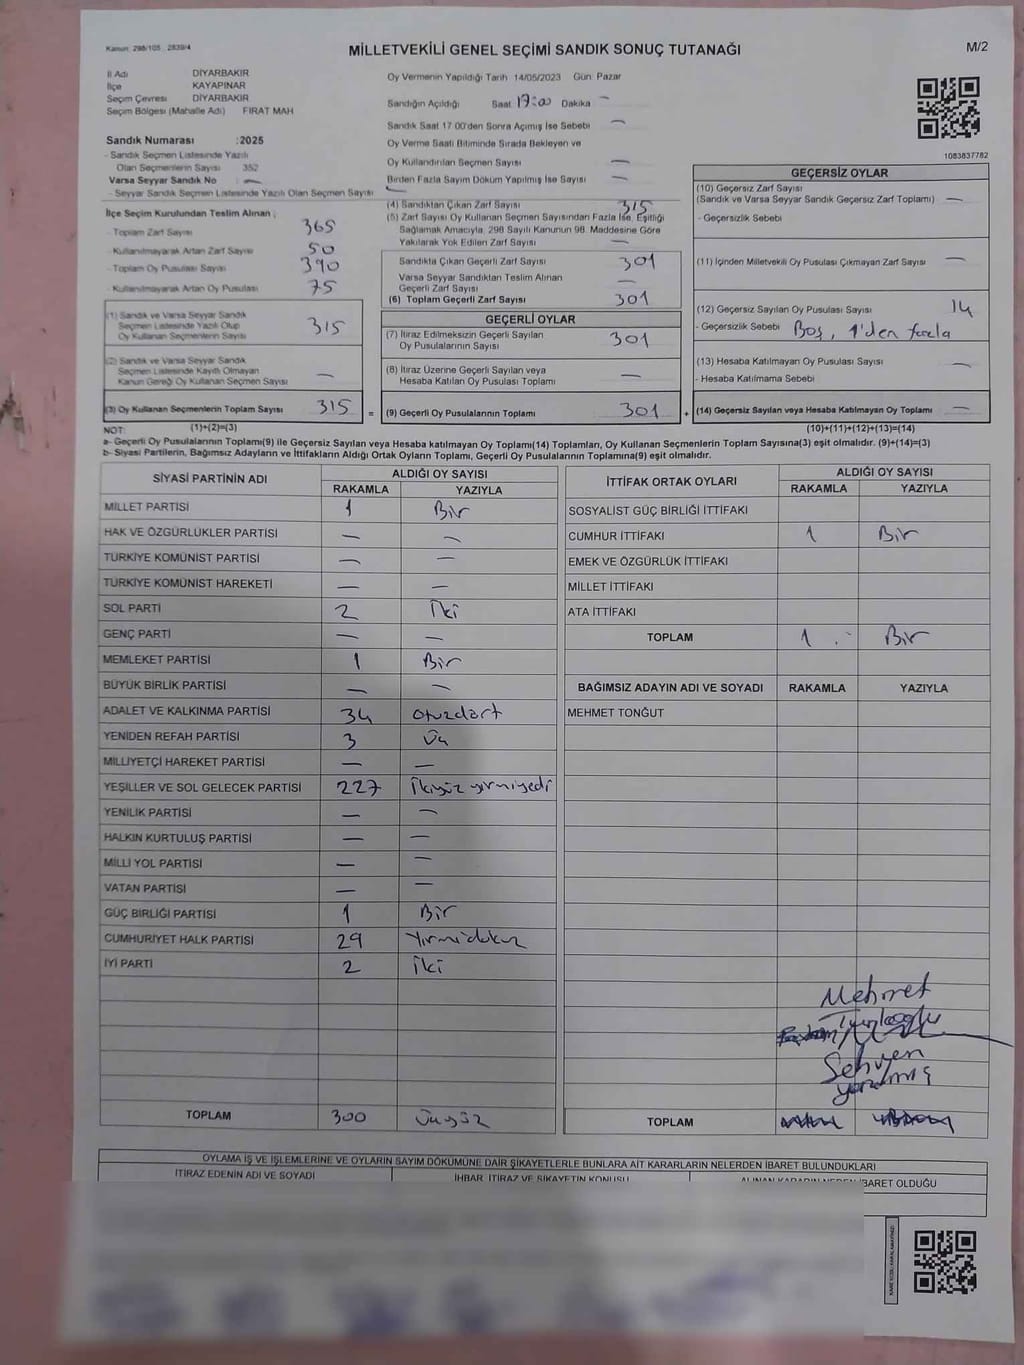 Kanun: 298/105 , 2839/4
MİLLETVEKİLİ GENEL SEÇİMİ SANDIK SONUÇ TUTANAĞI
M/2
İl Adı DİYARBAKIR
İlçe KAYAPINAR
Seçim Çevresi DİYARBAKIR
Seçim Bölgesi (Mahalle Adı) FIRAT MAH
Sandık Numarası :2025
- Sandık Seçmen Listesinde Yazılı
Olan Seçmenlerin Sayısı 352
Varsa Seyyar Sandık No : —
- Seyyar Sandık Seçmen Listesinde Yazılı Olan Seçmen Sayısı —
Oy Vermenin Yapıldığı Tarih 14/05/2023 Gün Pazar
Sandığın Açıldığı Saat 17:00 Dakika —
Sandık Saat 17 00'den Sonra Açımış İse Sebebi —
Oy Verme Saati Bitiminde Sırada Bekleyen ve
Oy Kullandırılan Seçmen Sayısı —
Birden Fazla Sayım Döküm Yapılmış İse Sayısı —
1083837782
İlçe Seçim Kurulundan Teslim Alınan ;
- Toplam Zarf Sayısı 365
- Kullanılmayarak Artan Zarf Sayısı 50
- Toplam Oy Pusulası Sayısı 390
- Kullanılmayarak Artan Oy Pusulası 75
(1) Sandık ve Varsa Seyyar Sandık
Seçmen Listesinde Yazılı Olup
Oy Kullanan Seçmenlerin Sayısı 315
(2) Sandık ve Varsa Seyyar Sandık
Seçmen Listesinde Kayıtlı Olmayan
Kanun Gereği Oy Kullanan Seçmen Sayısı —
(3) Oy Kullanan Seçmenlerin Toplam Sayısı 315 =
(4) Sandıktan Çıkan Zarf Sayısı 315
(5) Zarf Sayısı Oy Kullanan Seçmen Sayısından Fazla İse, Eşitliği
Sağlamak Amacıyla, 298 Sayılı Kanunun 98. Maddesine Göre
Yakılarak Yok Edilen Zarf Sayısı —
Sandıkta Çıkan Geçerli Zarf Sayısı 301
Varsa Seyyar Sandıktan Teslim Alınan
Geçerli Zarf Sayısı —
(6) Toplam Geçerli Zarf Sayısı 301
GEÇERLİ OYLAR
(7) İtiraz Edilmeksizin Geçerli Sayılan
Oy Pusulalarının Sayısı 301
(8) İtiraz Üzerine Geçerli Sayılan veya
Hesaba Katılan Oy Pusulası Toplamı —
(9) Geçerli Oy Pusulalarının Toplamı 301 +
GEÇERSİZ OYLAR
(10) Geçersiz Zarf Sayısı
(Sandık ve Varsa Seyyar Sandık Geçersiz Zarf Toplamı) —
- Geçersizlik Sebebi
(11) İçinden Milletvekili Oy Pusulası Çıkmayan Zarf Sayısı —
(12) Geçersiz Sayılan Oy Pusulası Sayısı 14
- Geçersizlik Sebebi Boş, 1'den fazla
(13) Hesaba Katılmayan Oy Pusulası Sayısı —
- Hesaba Katılmama Sebebi
(14) Geçersiz Sayılan veya Hesaba Katılmayan Oy Toplamı —
NOT: (1)+(2)=(3) (10)+(11)+(12)+(13)=(14)
a- Geçerli Oy Pusulalarının Toplamı(9) ile Geçersiz Sayılan veya Hesaba katılmayan Oy Toplamı(14) Toplamları, Oy Kullanan Seçmenlerin Toplam Sayısına(3) eşit olmalıdır. (9)+(14)=(3)
b- Siyasi Partilerin, Bağımsız Adayların ve İttifakların Aldığı Ortak Oyların Toplamı, Geçerli Oy Pusulalarının Toplamına(9) eşit olmalıdır.
SİYASİ PARTİNİN ADI ALDIĞI OY SAYISI
RAKAMLA YAZIYLA
MİLLET PARTİSİ 1 Bir
HAK VE ÖZGÜRLÜKLER PARTİSİ — —
TÜRKİYE KOMÜNİST PARTİSİ — —
TÜRKİYE KOMÜNİST HAREKETİ — —
SOL PARTİ 2 İki
GENÇ PARTİ — —
MEMLEKET PARTİSİ 1 Bir
BÜYÜK BİRLİK PARTİSİ — —
ADALET VE KALKINMA PARTİSİ 34 otuzdört
YENİDEN REFAH PARTİSİ 3 Üç
MİLLİYETÇİ HAREKET PARTİSİ — —
YEŞİLLER VE SOL GELECEK PARTİSİ 227 İkiyüz yirmiyedi
YENİLİK PARTİSİ — —
HALKIN KURTULUŞ PARTİSİ — —
MİLLİ YOL PARTİSİ — —
VATAN PARTİSİ — —
GÜÇ BİRLİĞİ PARTİSİ 1 Bir
CUMHURİYET HALK PARTİSİ 29 Yirmidokuz
İYİ PARTİ 2 İki
TOPLAM 300 Üçyüz
İTTİFAK ORTAK OYLARI ALDIĞI OY SAYISI
RAKAMLA YAZIYLA
SOSYALİST GÜÇ BİRLİĞİ İTTİFAKI
CUMHUR İTTİFAKI 1 Bir
EMEK VE ÖZGÜRLÜK İTTİFAKI
MİLLET İTTİFAKI
ATA İTTİFAKI
TOPLAM 1 Bir
BAĞIMSIZ ADAYIN ADI VE SOYADI RAKAMLA YAZIYLA
MEHMET TONĞUT
Mehmet
Sehven
yazılmış
TOPLAM
OYLAMA İŞ VE İŞLEMLERİNE VE OYLARIN SAYIM DÖKÜMÜNE DAİR ŞİKAYETLERLE BUNLARA AİT KARARLARIN NELERDEN İBARET BULUNDUKLARI
İTİRAZ EDENİN ADI VE SOYADI İHBAR, İTİRAZ VE ŞİKAYETİN KONUSU ALINAN KARARIN NEDEN İBARET OLDUĞU